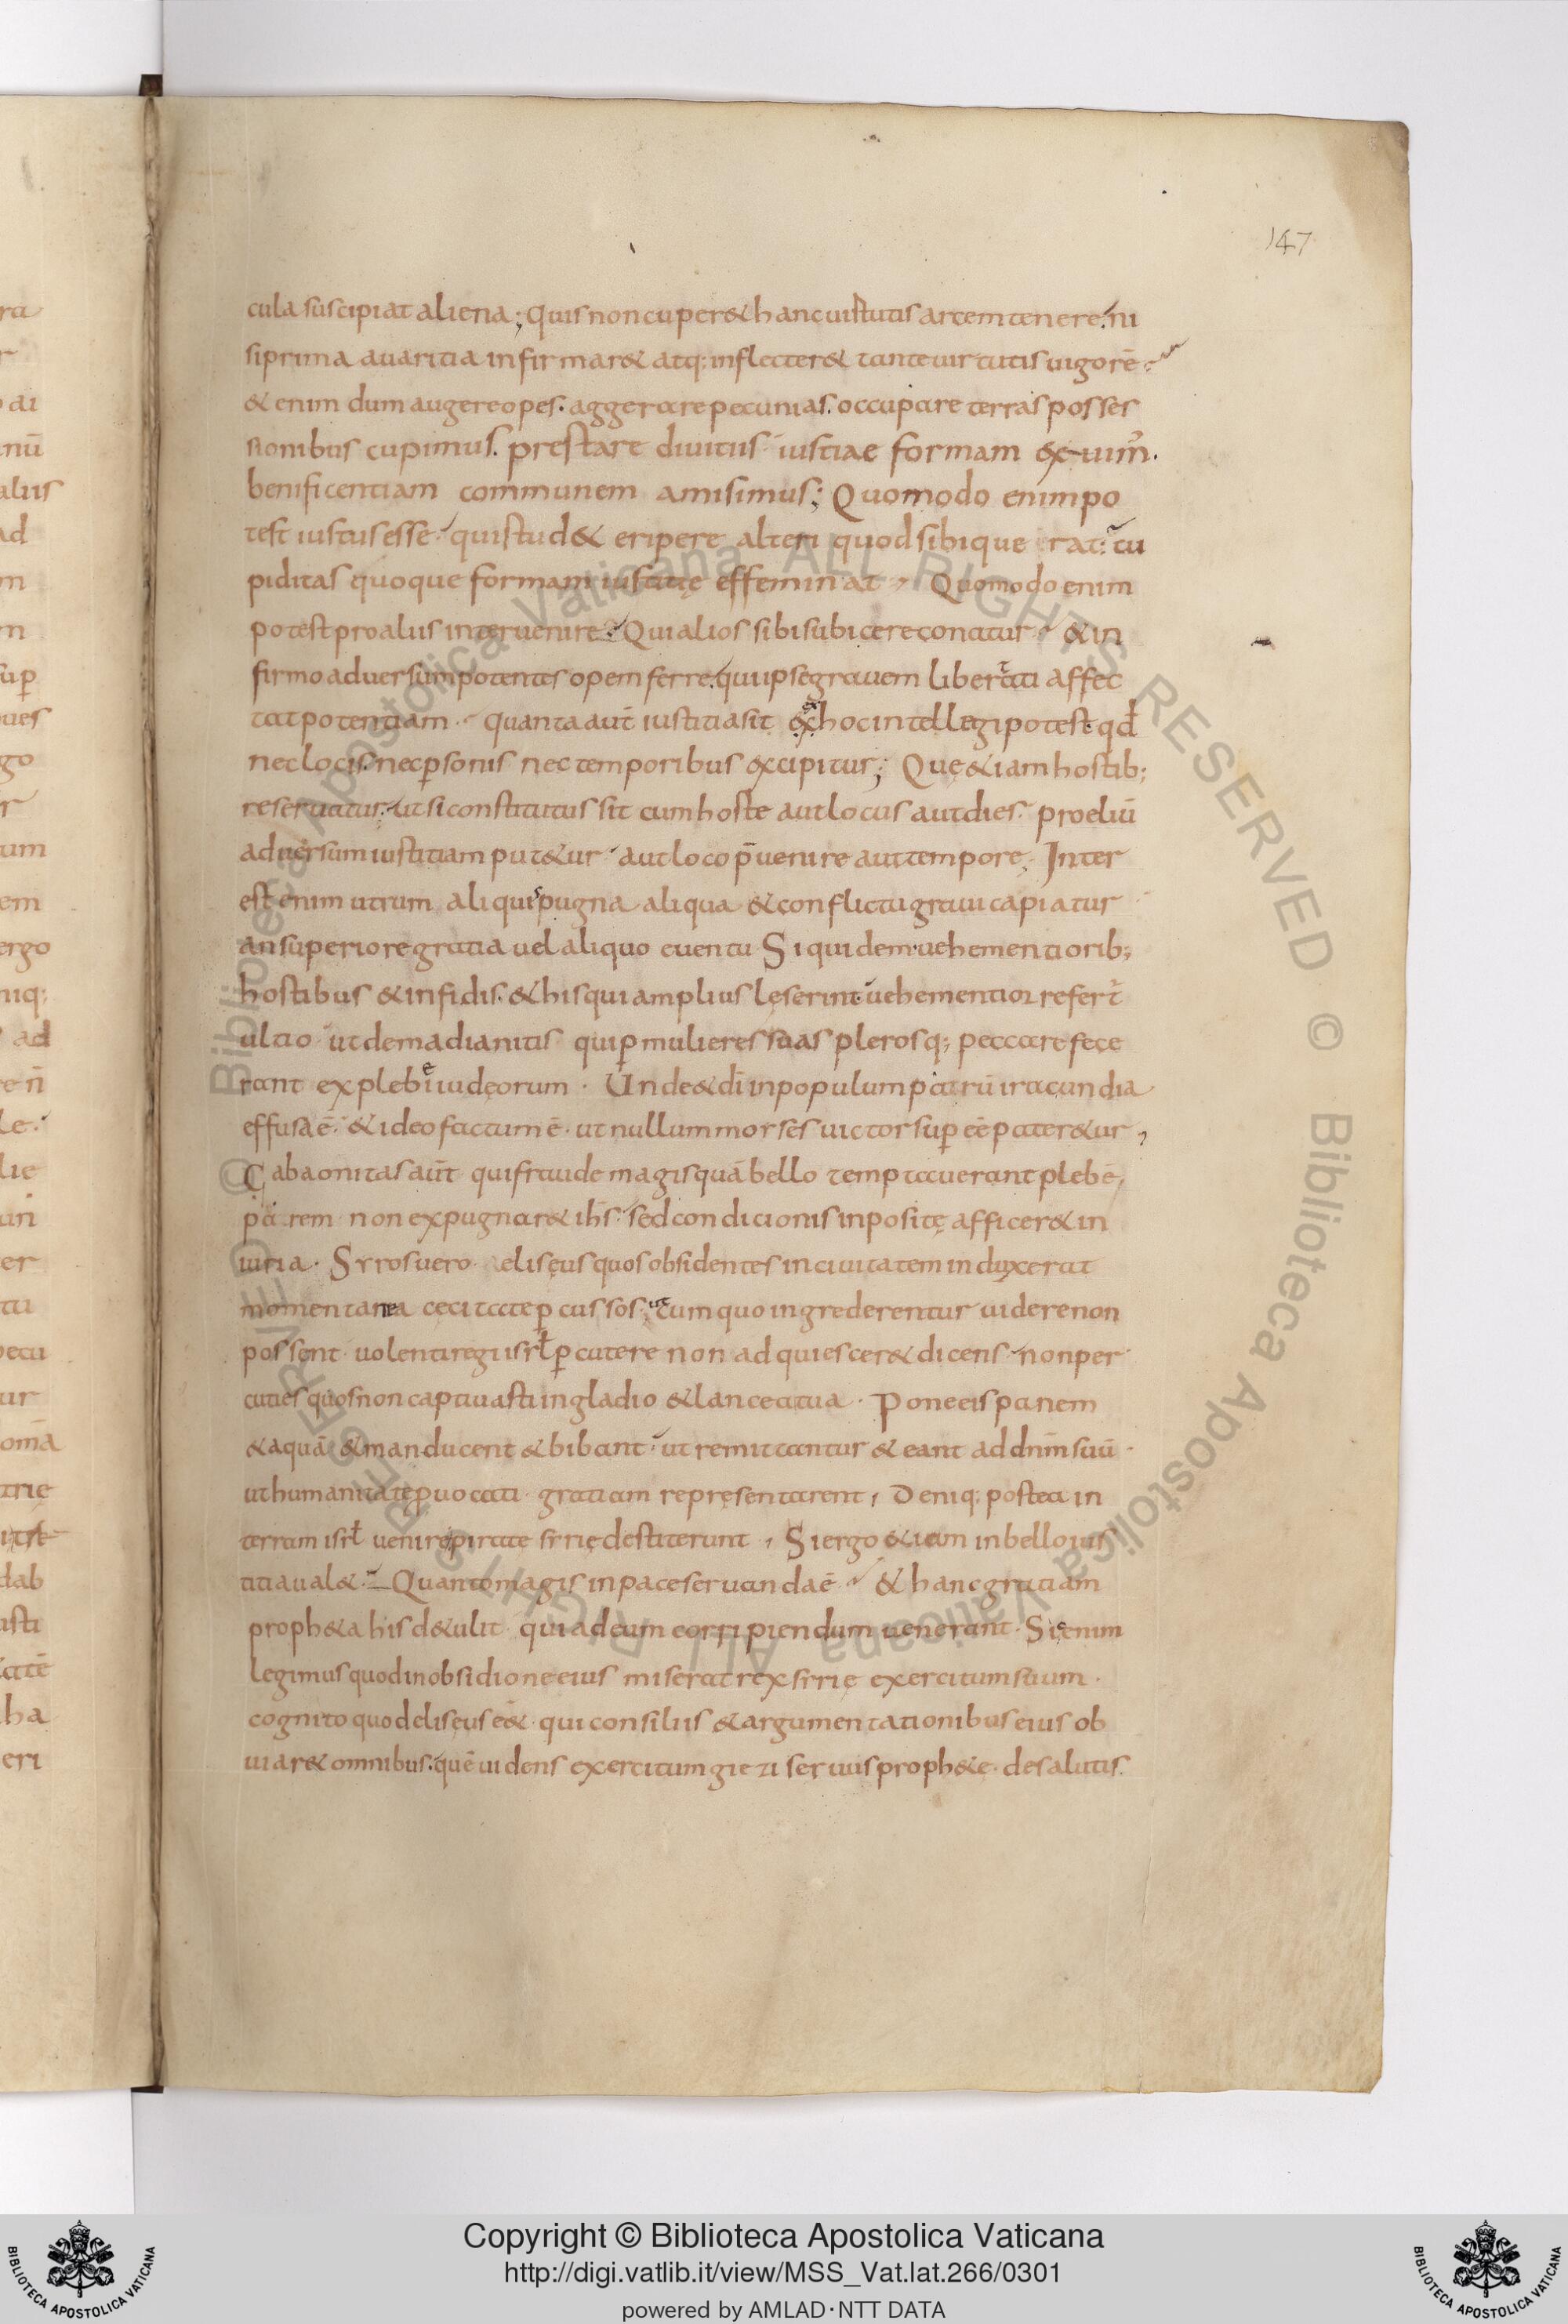 147
cula suscipiat aliena; Quis non cuper& hanc uistutis arcem tenere. ni
si prima auaritia infirmar& atq; inflecter& tante uirtutis uigorē
& enim dum augere opes. aggerare pecunias. occupare terras posses
sionibus cupimus. prestare diuitiis iustiae formam exuim̄.
benificentiam communem amisimus; Quomodo enim po
test iustus esse qui stud& eripere alteri quod sibi que rat. cu
piditas quoque formam iustitię effeminat. Quomodo enim
potest pro aliis interuenire. Qui alios sibi subicere conatur. & in
firmo aduersum potentes opem ferre. qui ipse grauem liberati affec
tat potentiam. quanta aut̄ iustitia sit ex hoc intellegi potest. qd̄
nec locis. nec ꝑsonis nec temporibus excipitur; Quę &iam hostib;
reseruatur. ut si constitutus sit cum hoste aut locus aut dies. proeliū
aduersum iustitiam put&ur aut loco p̄uenire aut tempore. Inter
est enim utrum aliquis pugna aliqua & conflictu graui capiatur
an superiore gratia uel aliquo euentu. Siquidem uehementiorib;
hostibus & infidis. & his qui amplius lęserint. uehementior refert̄
ultio ut de madianitis qui ꝑ mulieres suas plerosq; peccare fece
rant ex plebe iudęorum. Unde & dī in populum patrū iracundia
effusa ē. & ideo factum ē. ut nullum morses uictor suꝑ eē pater&ur,
Gabaonitas aūt qui fraude magis quā bello temptauerant plebē,
pa rem non expugnar& ih̄s. sed condicionis inpositę afficer& in
iuria. Syros uero elisęus quos obsidentes in ciuitatem induxerat
momentanea cecitate ꝑcussos. ut cum quo ingrederentur uidere non
possent. uolenti regi isrł ꝑcutere non adquiescer& dicens. non per
cuties quos non captiuasti in gladio & lancea tua. Pone eis panem
& aquā. & manducent & bibant. ut remittantur & eant ad dn̄m suū.
ut humanitate ꝓuocati. gratiam repręsentarent, Deniq; postea in
terram isrł uenire pirate sirię destiterunt, Si ergo &iam in bello ius
titia ual&. Quanto magis in pace seruanda ē. & hanc gratiam
proph&a his d&ulit. qui ad eum corripiendum uenerant. Sic enim
legimus quod in obsidione eius miserat rex sirię exercitum suum.
cognito quod elisęus eē&. qui consiliis & argumentationibus eius ob
uiar& omnibus. quē uidens exercitum giezi seruus proph&ę. de salutis.
Copyright © Biblioteca Apostolica Vaticana
http://digi.vatlib.it/view/MSS_Vat.lat.266/0301
powered by AMLAD·NTT DATA